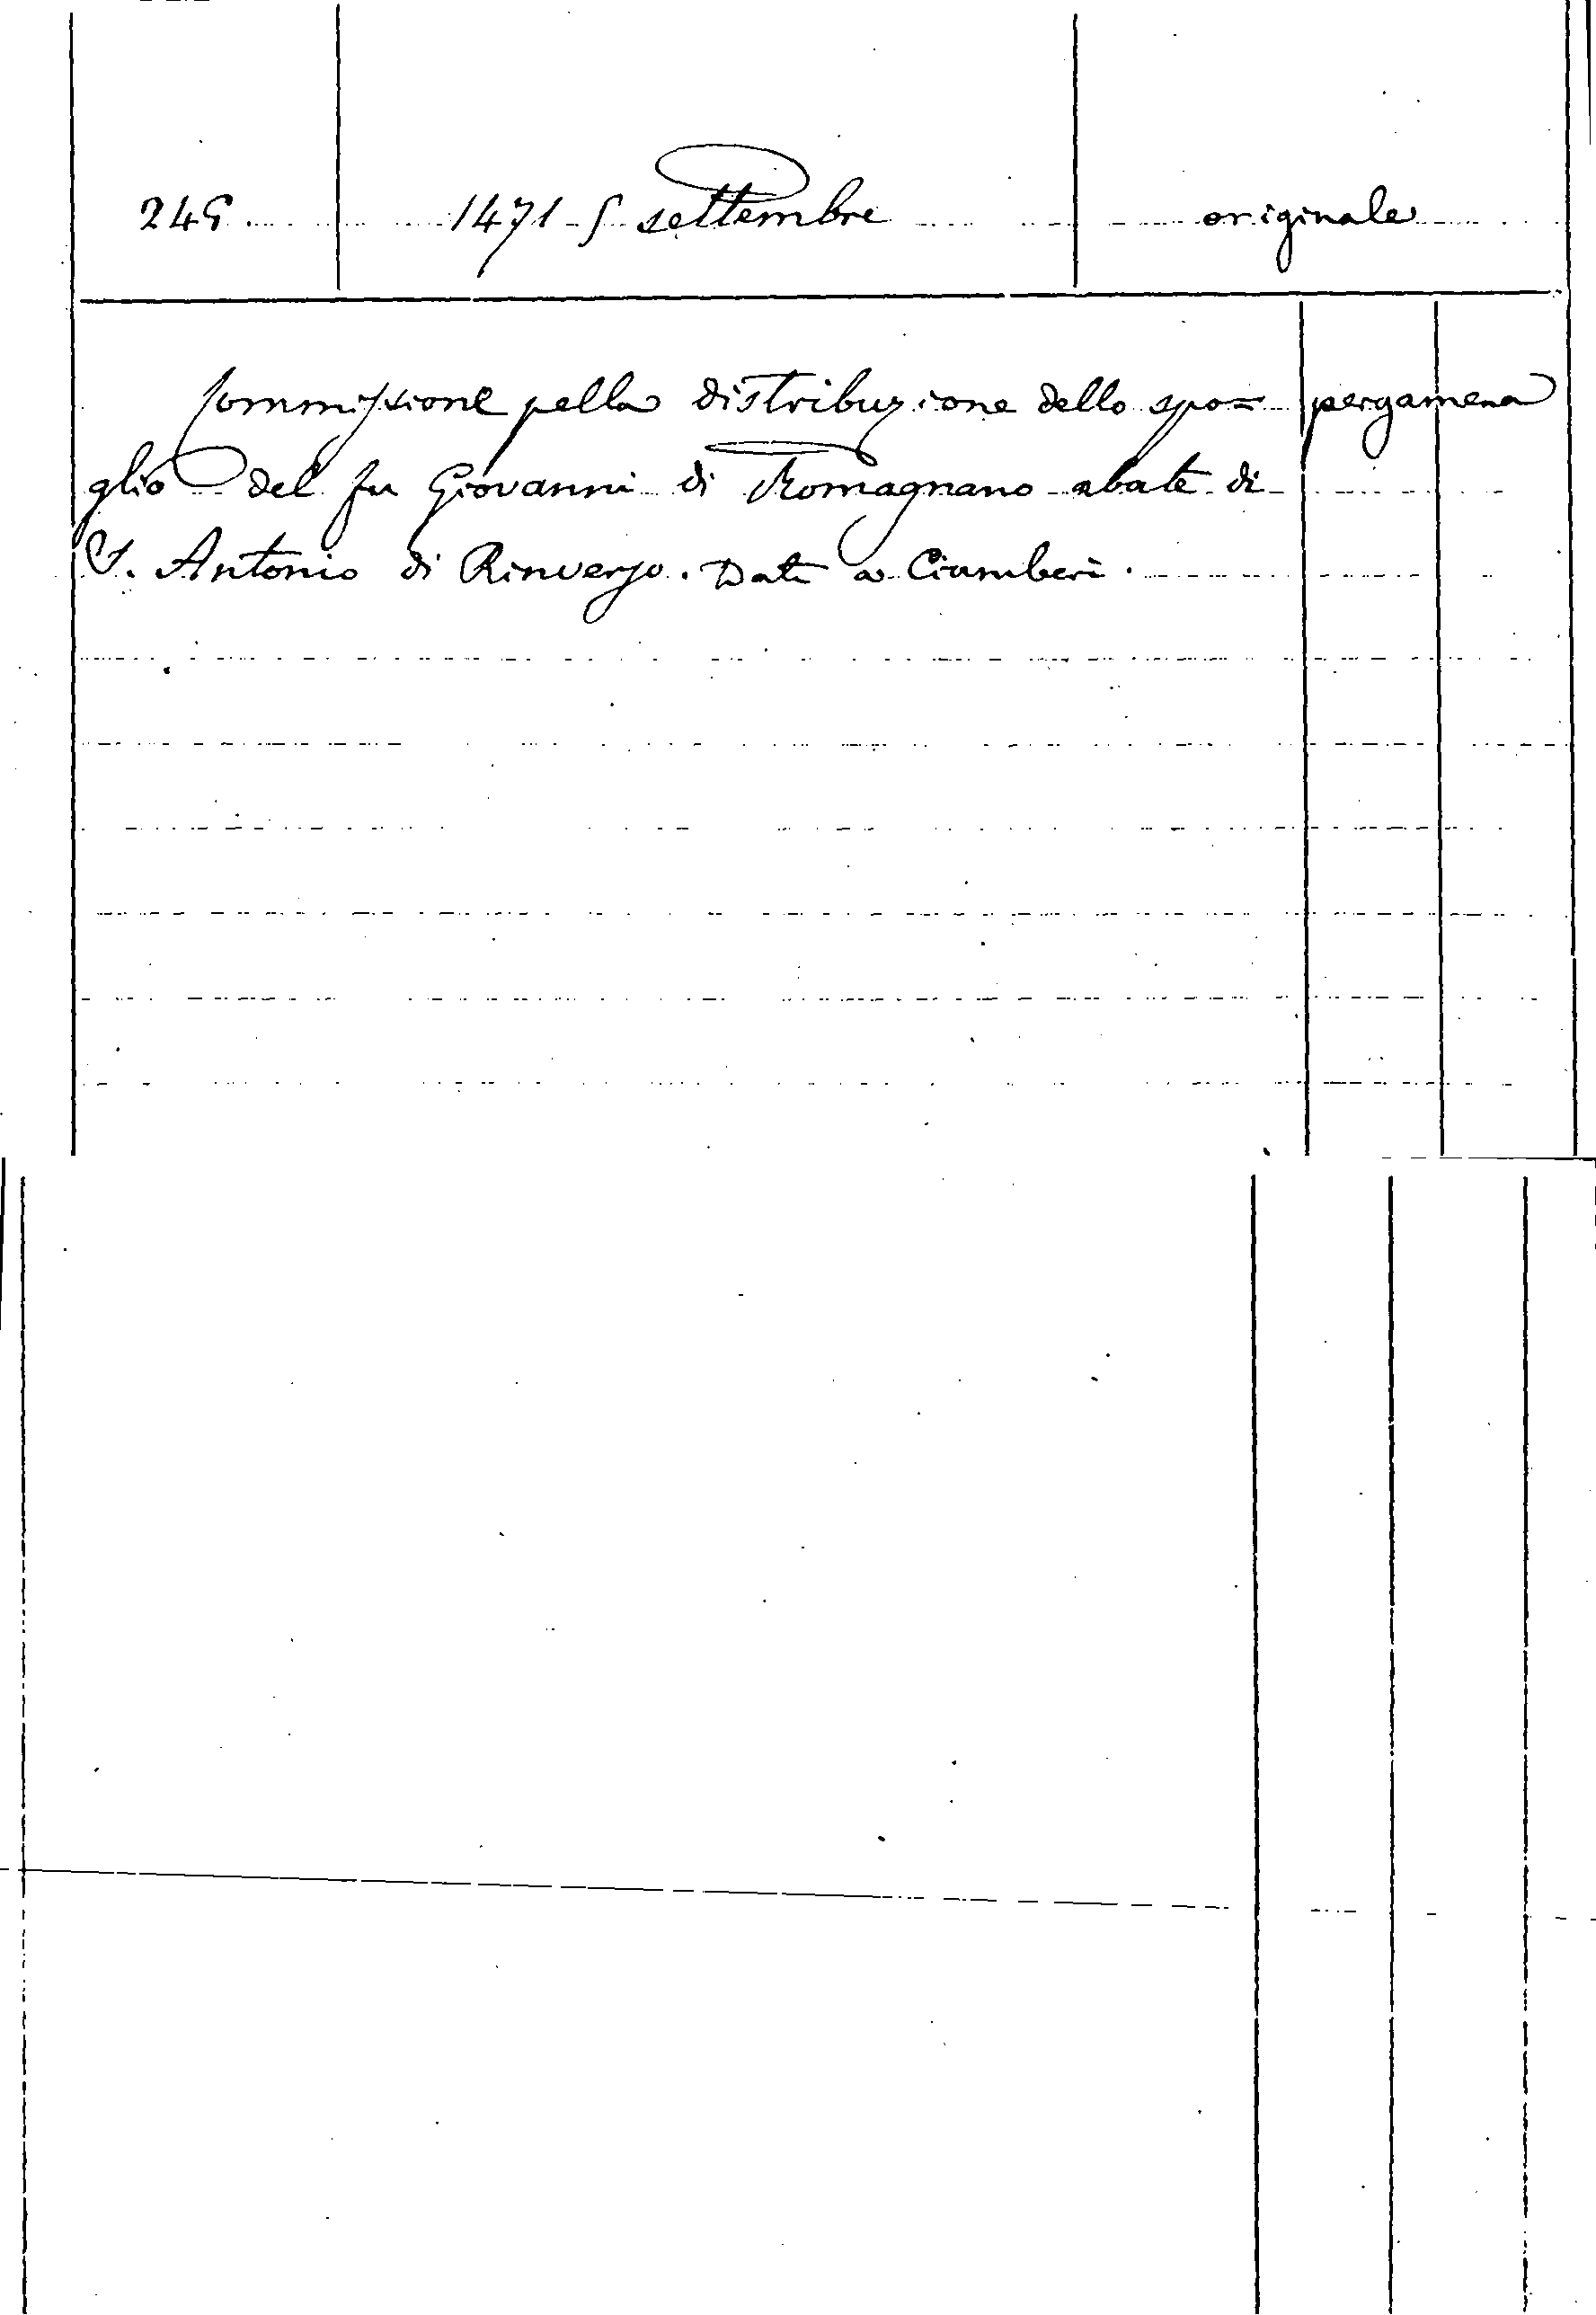 249. 1471 5 settembre originale
Commissione pella distribuzione dello spo= pergamena
glio del fu Giovanni di Romagnano abate di
S. Antonio di Rinverso. Dati a Ciamberì.